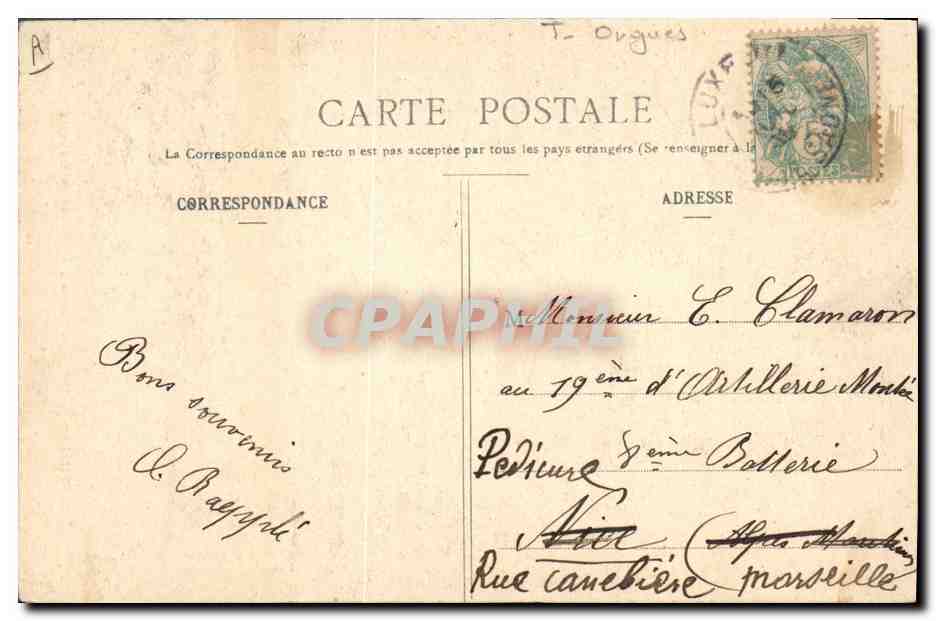 A
T- Orgues
CARTE POSTALE
La Correspondance au recto n'est pas acceptée par tous les pays étrangers (Se renseigner à la
CORRESPONDANCE
ADRESSE
LUX
POSTES
CPAPHIL
Bons souvenirs
M Monsieur E. Clamaron
au 19ème d'Artillerie Montée
Pedicure 8ème Batterie
Nice (Alpes Maritimes
Rue Canebière Marseille